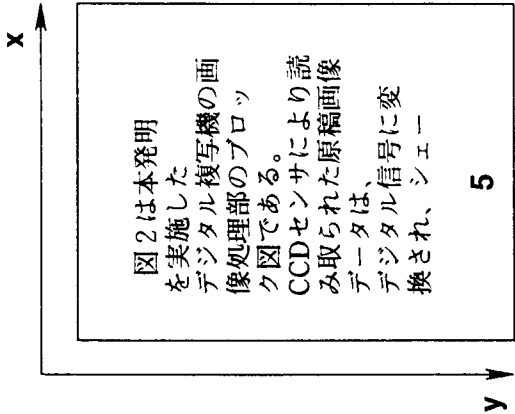 x
y
図2は本発明
を実施した
デジタル複写機の画
像処理部のブロッ
ク図である。
CCDセンサにより読
み取られた原稿画像
データは、
デジタル信号に変
換され、シェー
5